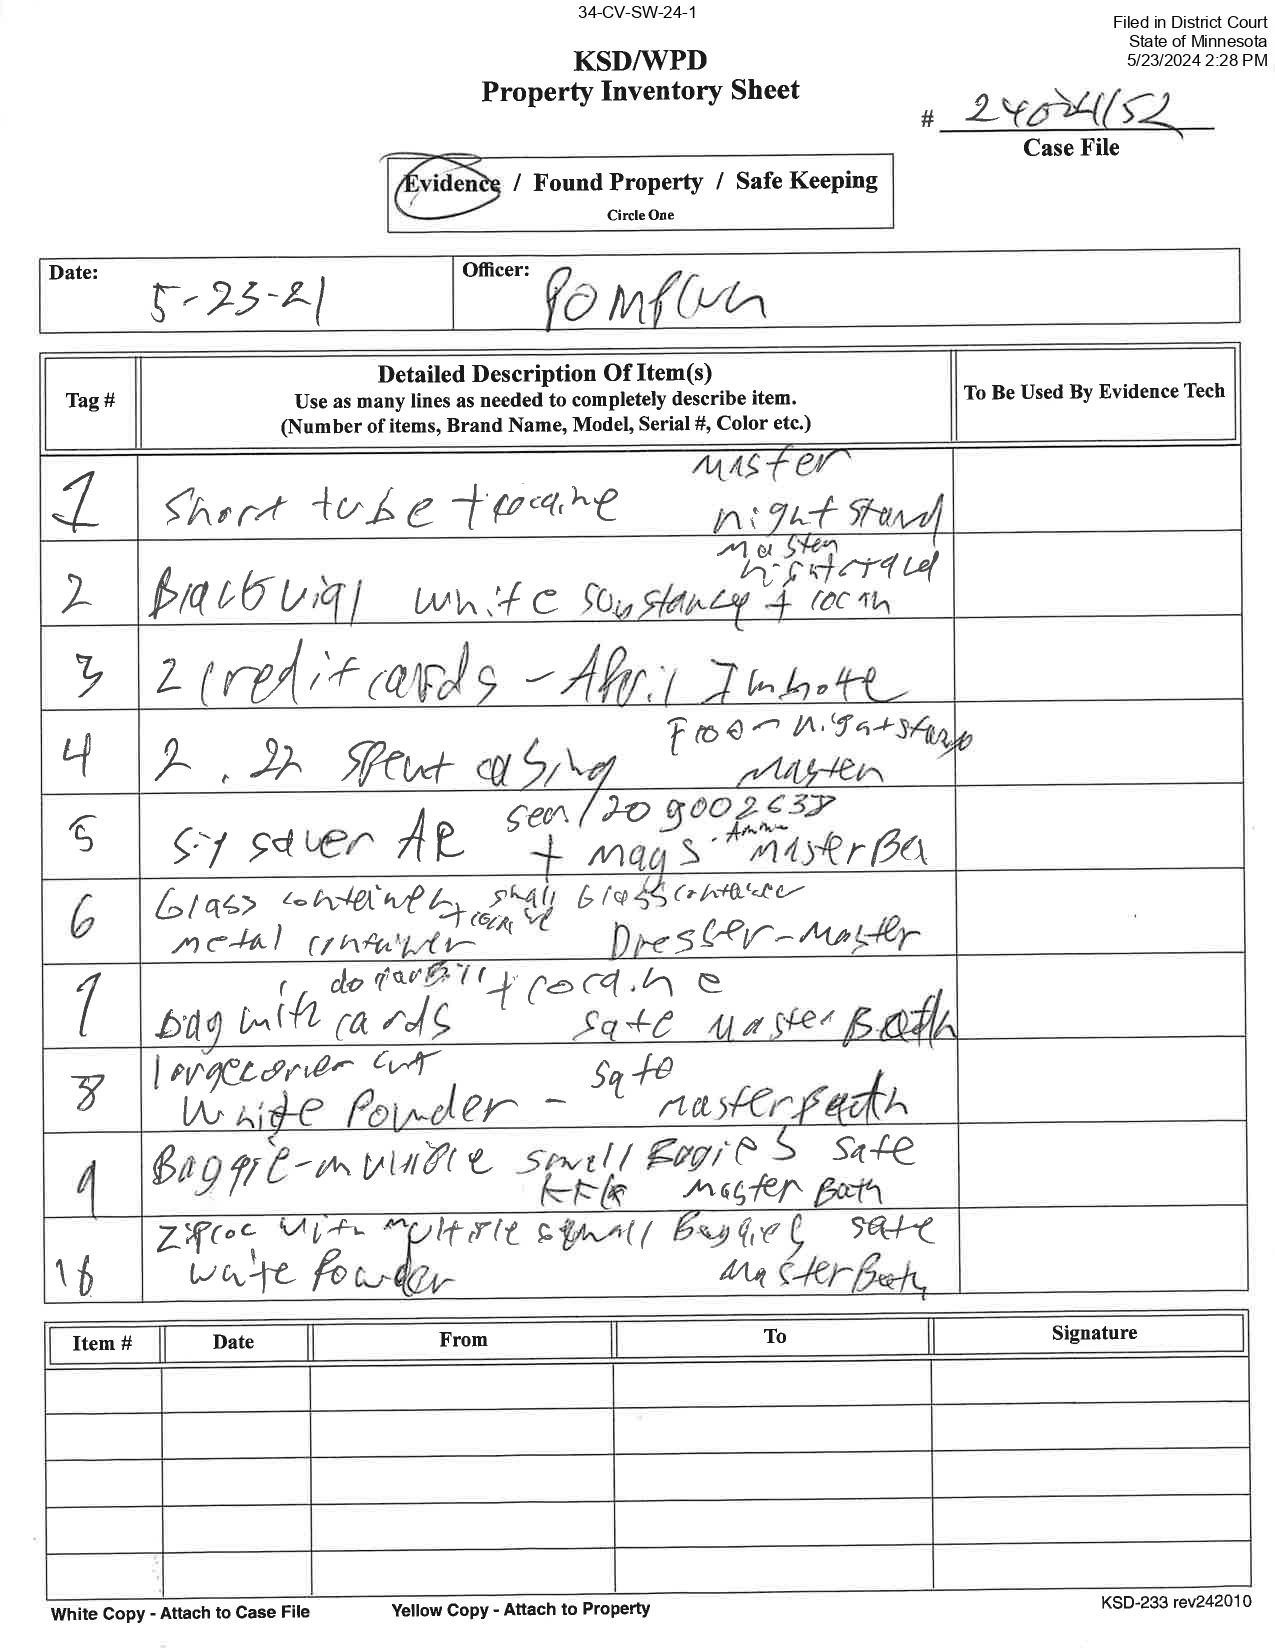 34-CV-SW-24-1
Filed in District Court
State of Minnesota
5/23/2024 2:28 PM
KSD/WPD
Property Inventory Sheet
#
Case File
Evidence / Found Property / Safe Keeping
Circle One
Date: 5-23-21 Officer:
Tag # Detailed Description Of Item(s) To Be Used By Evidence Tech
Use as many lines as needed to completely describe item.
(Number of items, Brand Name, Model, Serial #, Color etc.)
Master
1 Short tube + cocaine night stand
Master
nightstand
2 Black vial white substance +
3 2 credit cards - April Imholte
From nightstand
4 2 .22 spent casing Master
5 Sig sauer AR
+ mags Ammo Master
6 Glass container small Glass container
metal container Dresser - Master
dollar bill + cocaine
7 Bag with cards safe Master Bath
large corner cut safe
8 White Powder - Master Bath
9 Baggie - multiple small Bagies safe
Master Bath
Ziploc with multiple small Baggies safe
10 white Powder Master Bath
Item # Date From To Signature
White Copy - Attach to Case File Yellow Copy - Attach to Property KSD-233 rev242010